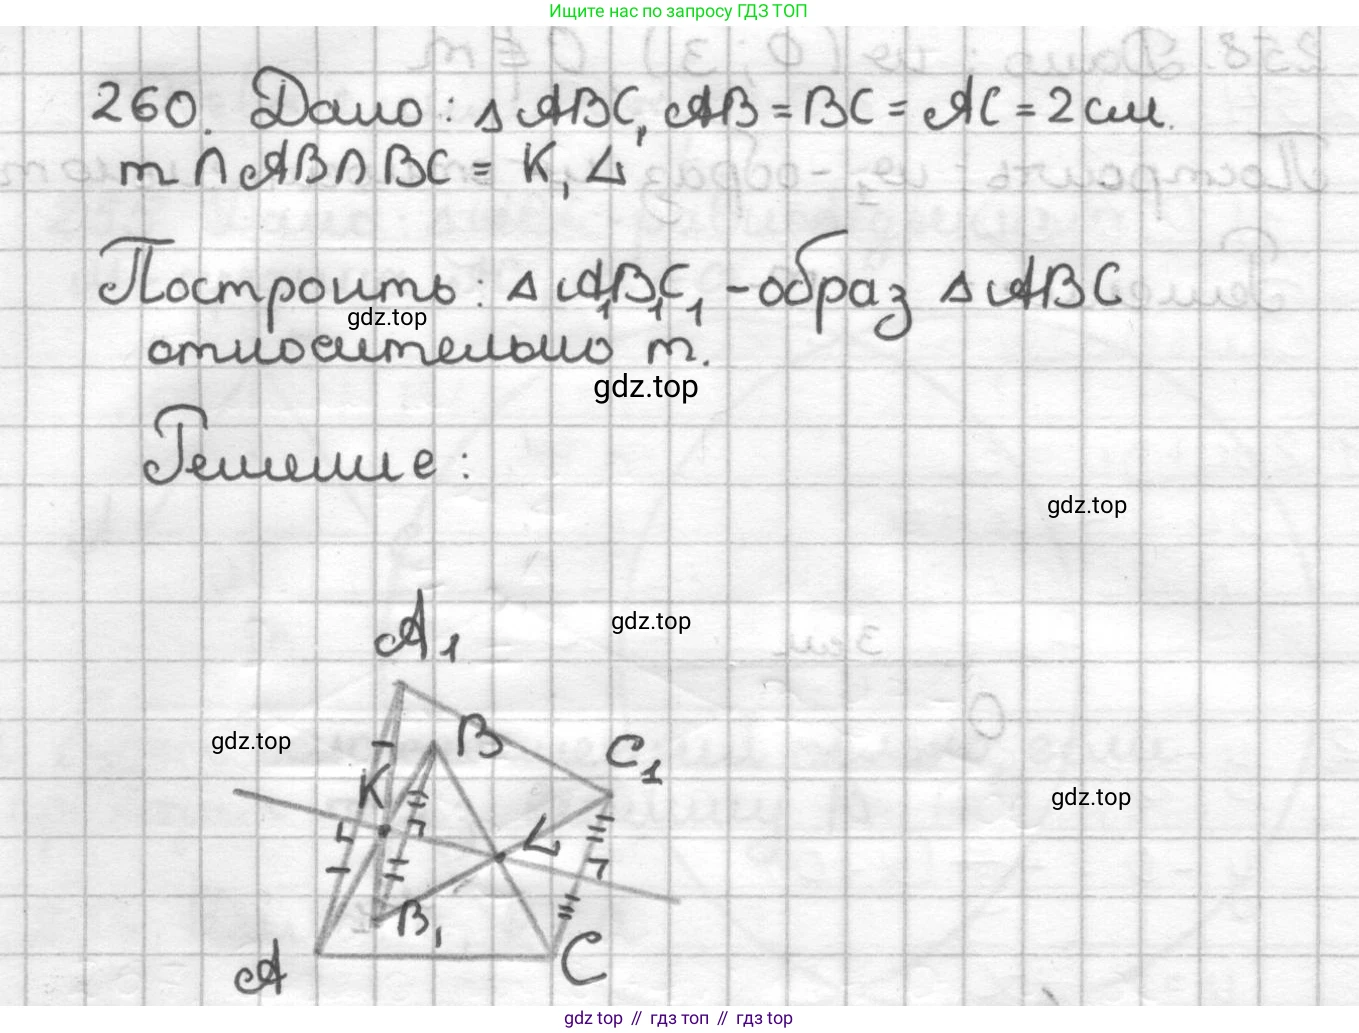 Ищите нас по запросу ГДЗ ТОП
260. Дано: △ ABC, AB = BC = AC = 2 см.
m ∩ AB ∩ BC = K, L
Построить: △ A₁B₁C₁ - образ △ ABC
gdz.top
относительно m.
gdz.top
Решение:
gdz.top
A₁
gdz.top
gdz.top
B
C₁
K
gdz.top
L
B₁
A
C
gdz top // гдз топ // гдз top